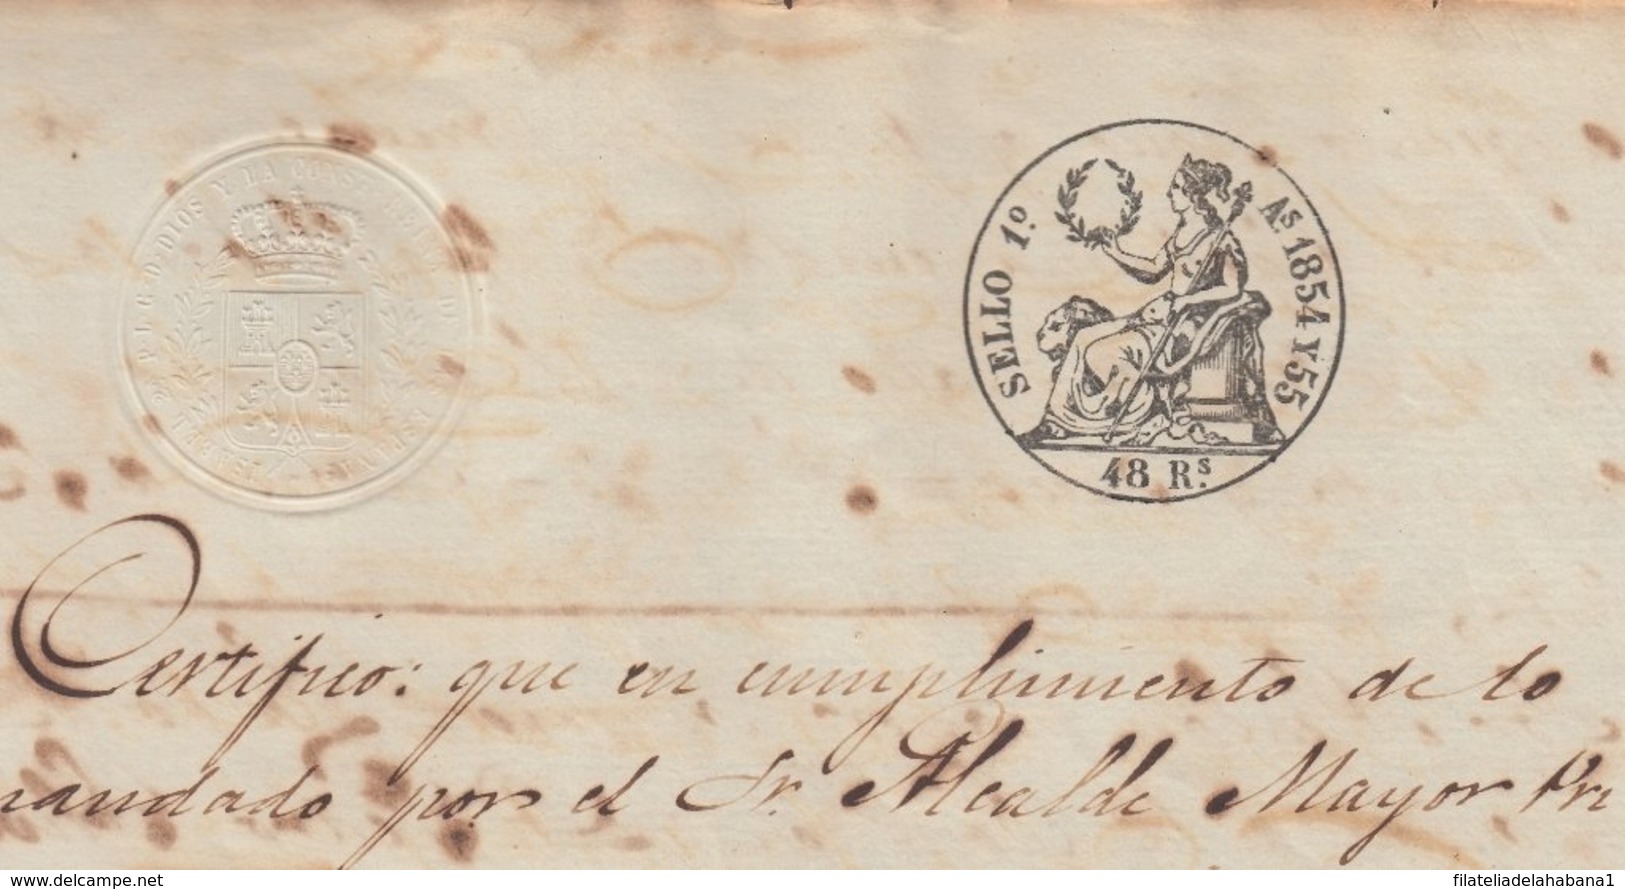 ISABEL 2ª P. L. G. D. DIOS Y LA CONST. REINA DE LAS ESPAÑAS
SELLO 1.º
As. 1854 Y 55
48 Rs.
Certifico: que en cumplimiento de lo
mandado por el Sr. Alcalde Mayor Pri
www.delcampe.net
filateliadelahabana1